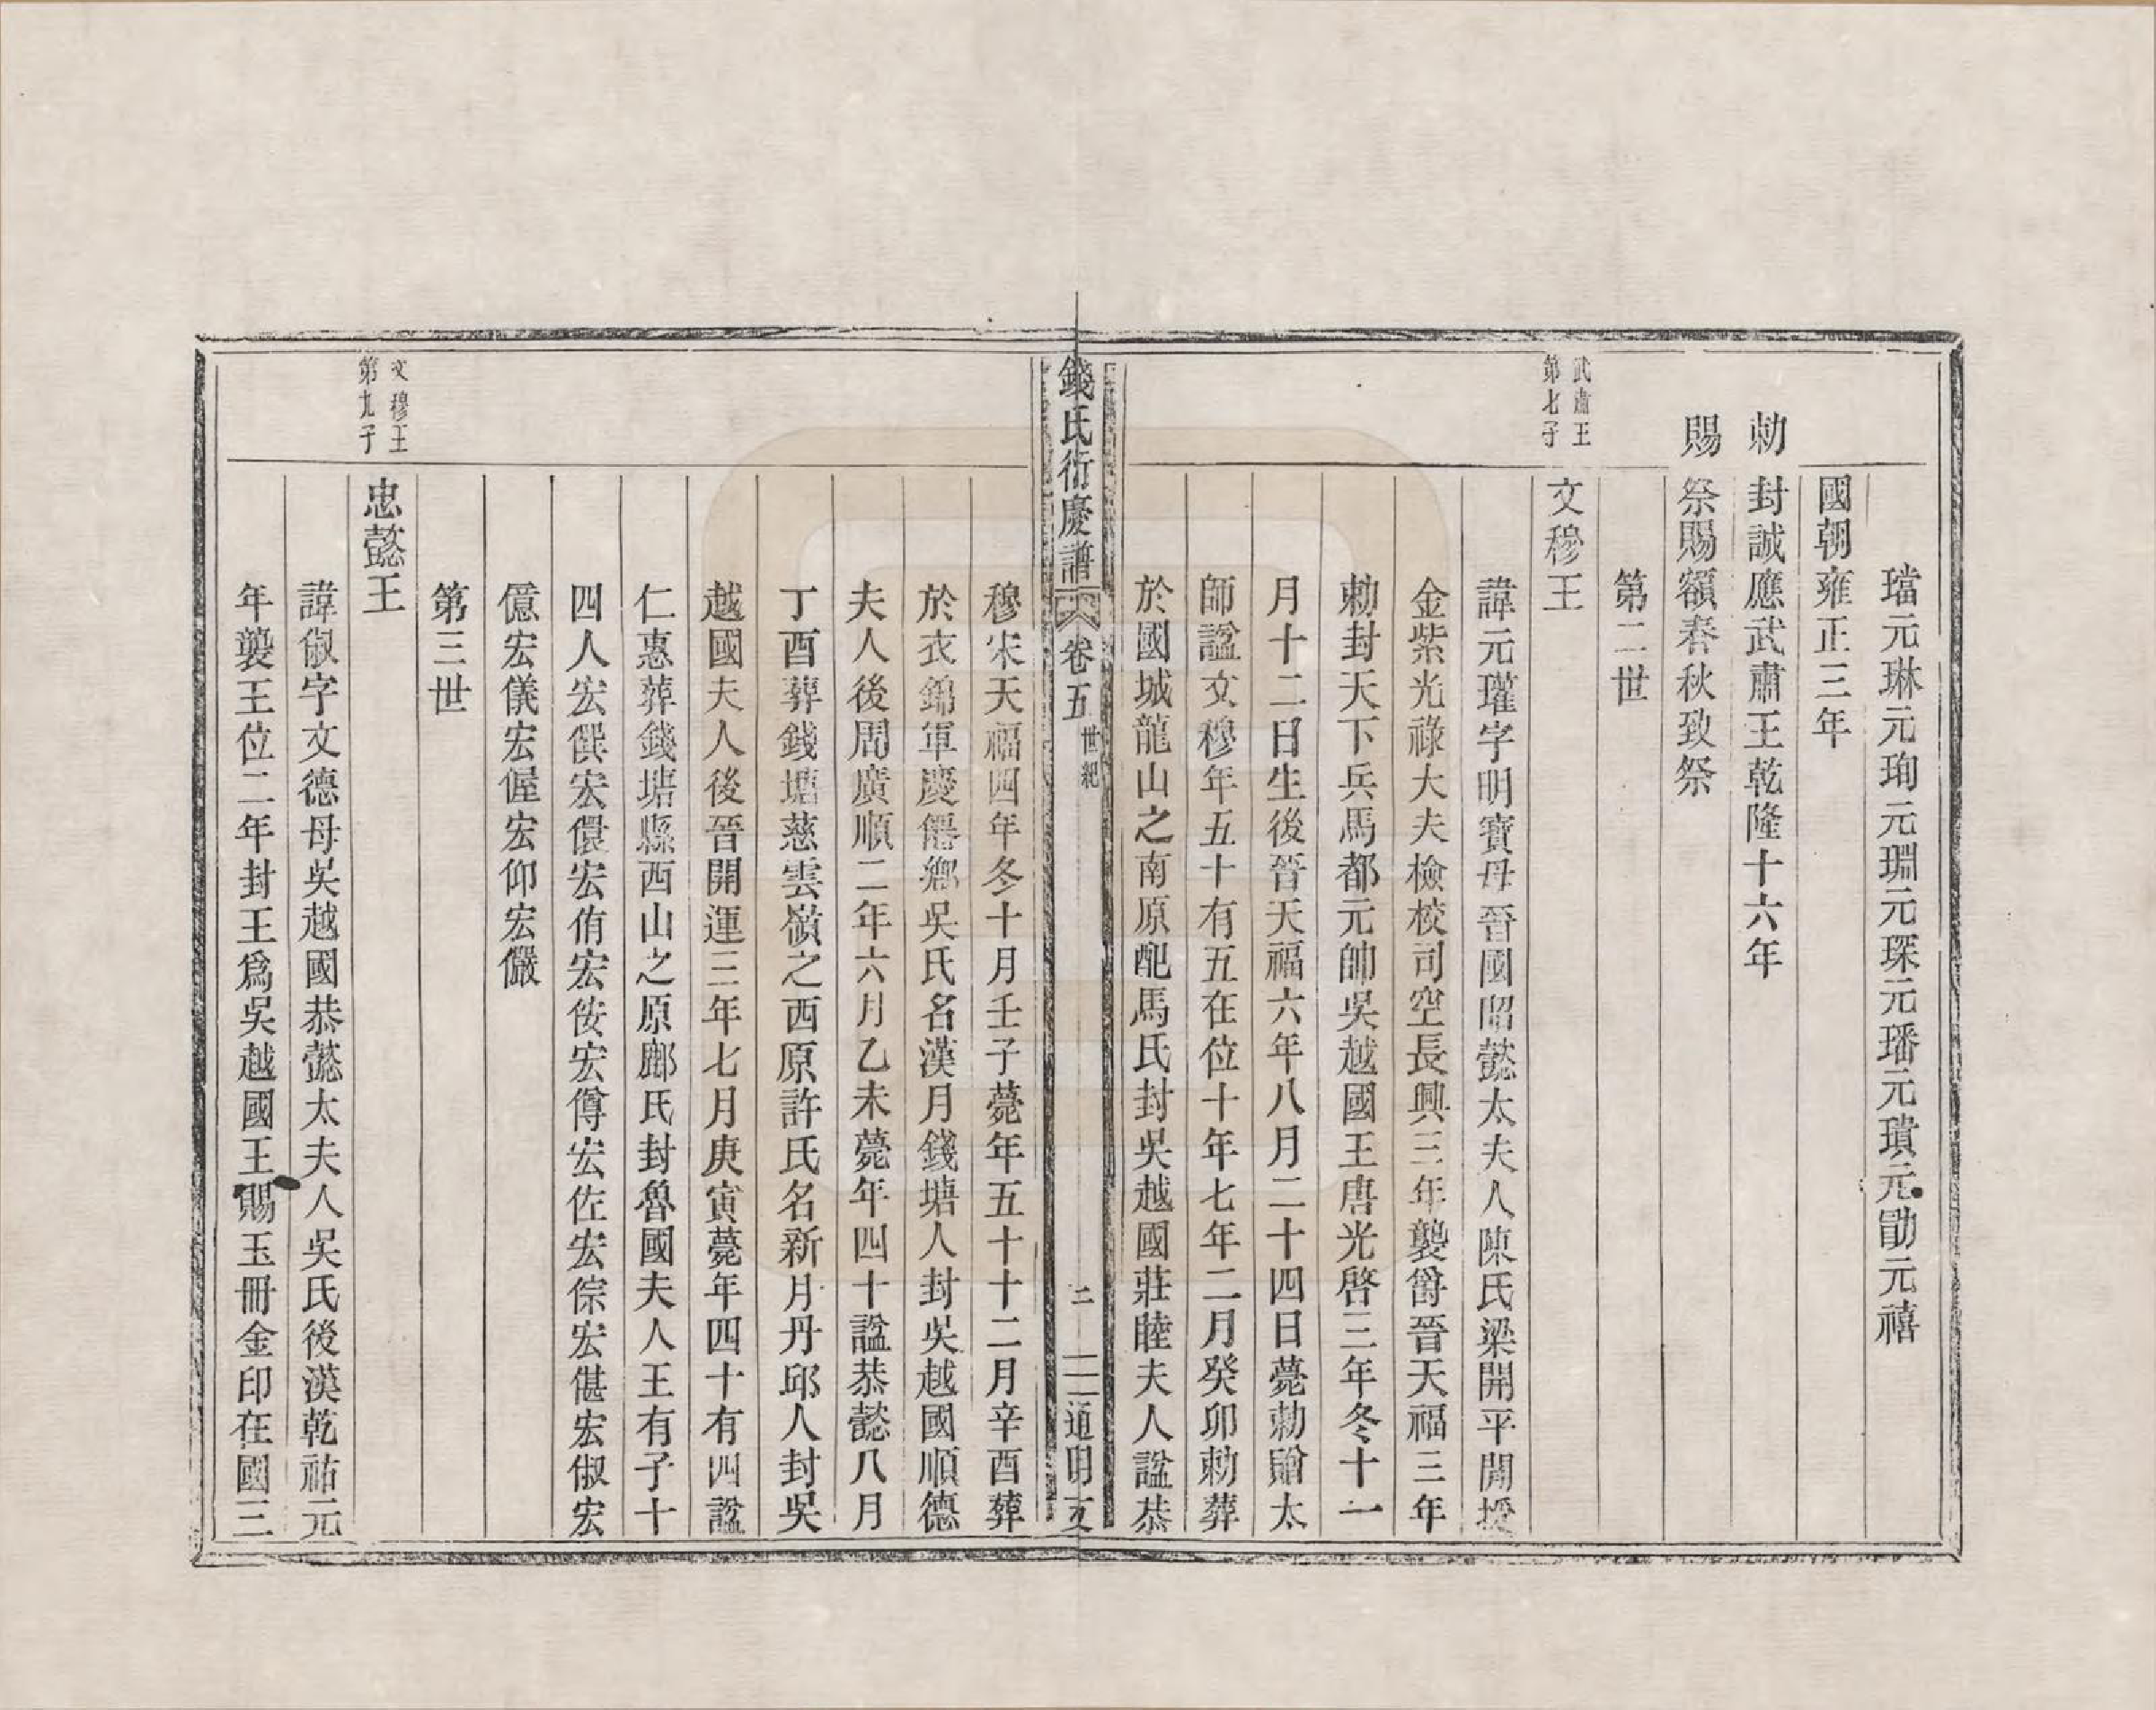 璫元琳元珣元㻰元琛元璠元璝元勖元禧
國朝雍正三年
勅封誠應武肅王乾隆十六年
賜祭賜額春秋致祭
第二世
武肅王
第七子
文穆王
諱元瓘字明寶母晉國昭懿太夫人陳氏梁開平閒授
金紫光祿大夫檢校司空長興三年襲爵晉天福三年
勅封天下兵馬都元帥吳越國王唐光啓三年冬十一
月十二日生後晉天福六年八月二十四日薨勅贈太
師諡文穆年五十有五在位十年七年二月癸卯勅葬
於國城龍山之南原配馬氏封吳越國莊睦夫人諡恭
錢氏衍慶譜
卷五
世紀
二
通明支
穆宋天福四年冬十月壬子薨年五十十二月辛酉葬
於衣錦軍慶僊鄉吳氏名漢月錢塘人封吳越國順德
夫人後周廣順二年六月乙未薨年四十諡恭懿八月
丁酉葬錢塘慈雲嶺之西原許氏名新月丹邱人封吳
越國夫人後晉開運三年七月庚寅薨年四十有四諡
仁惠葬錢塘縣西山之原鄜氏封魯國夫人王有子十
四人宏僎宏儇宏侑宏侒宏僔宏佐宏倧宏偡宏俶宏
億宏儀宏偓宏仰宏儼
第三世
文穆王
第九子
忠懿王
諱俶字文德母吳越國恭懿太夫人吳氏後漢乾祐元
年襲王位二年封王爲吳越國王賜玉冊金印在國三